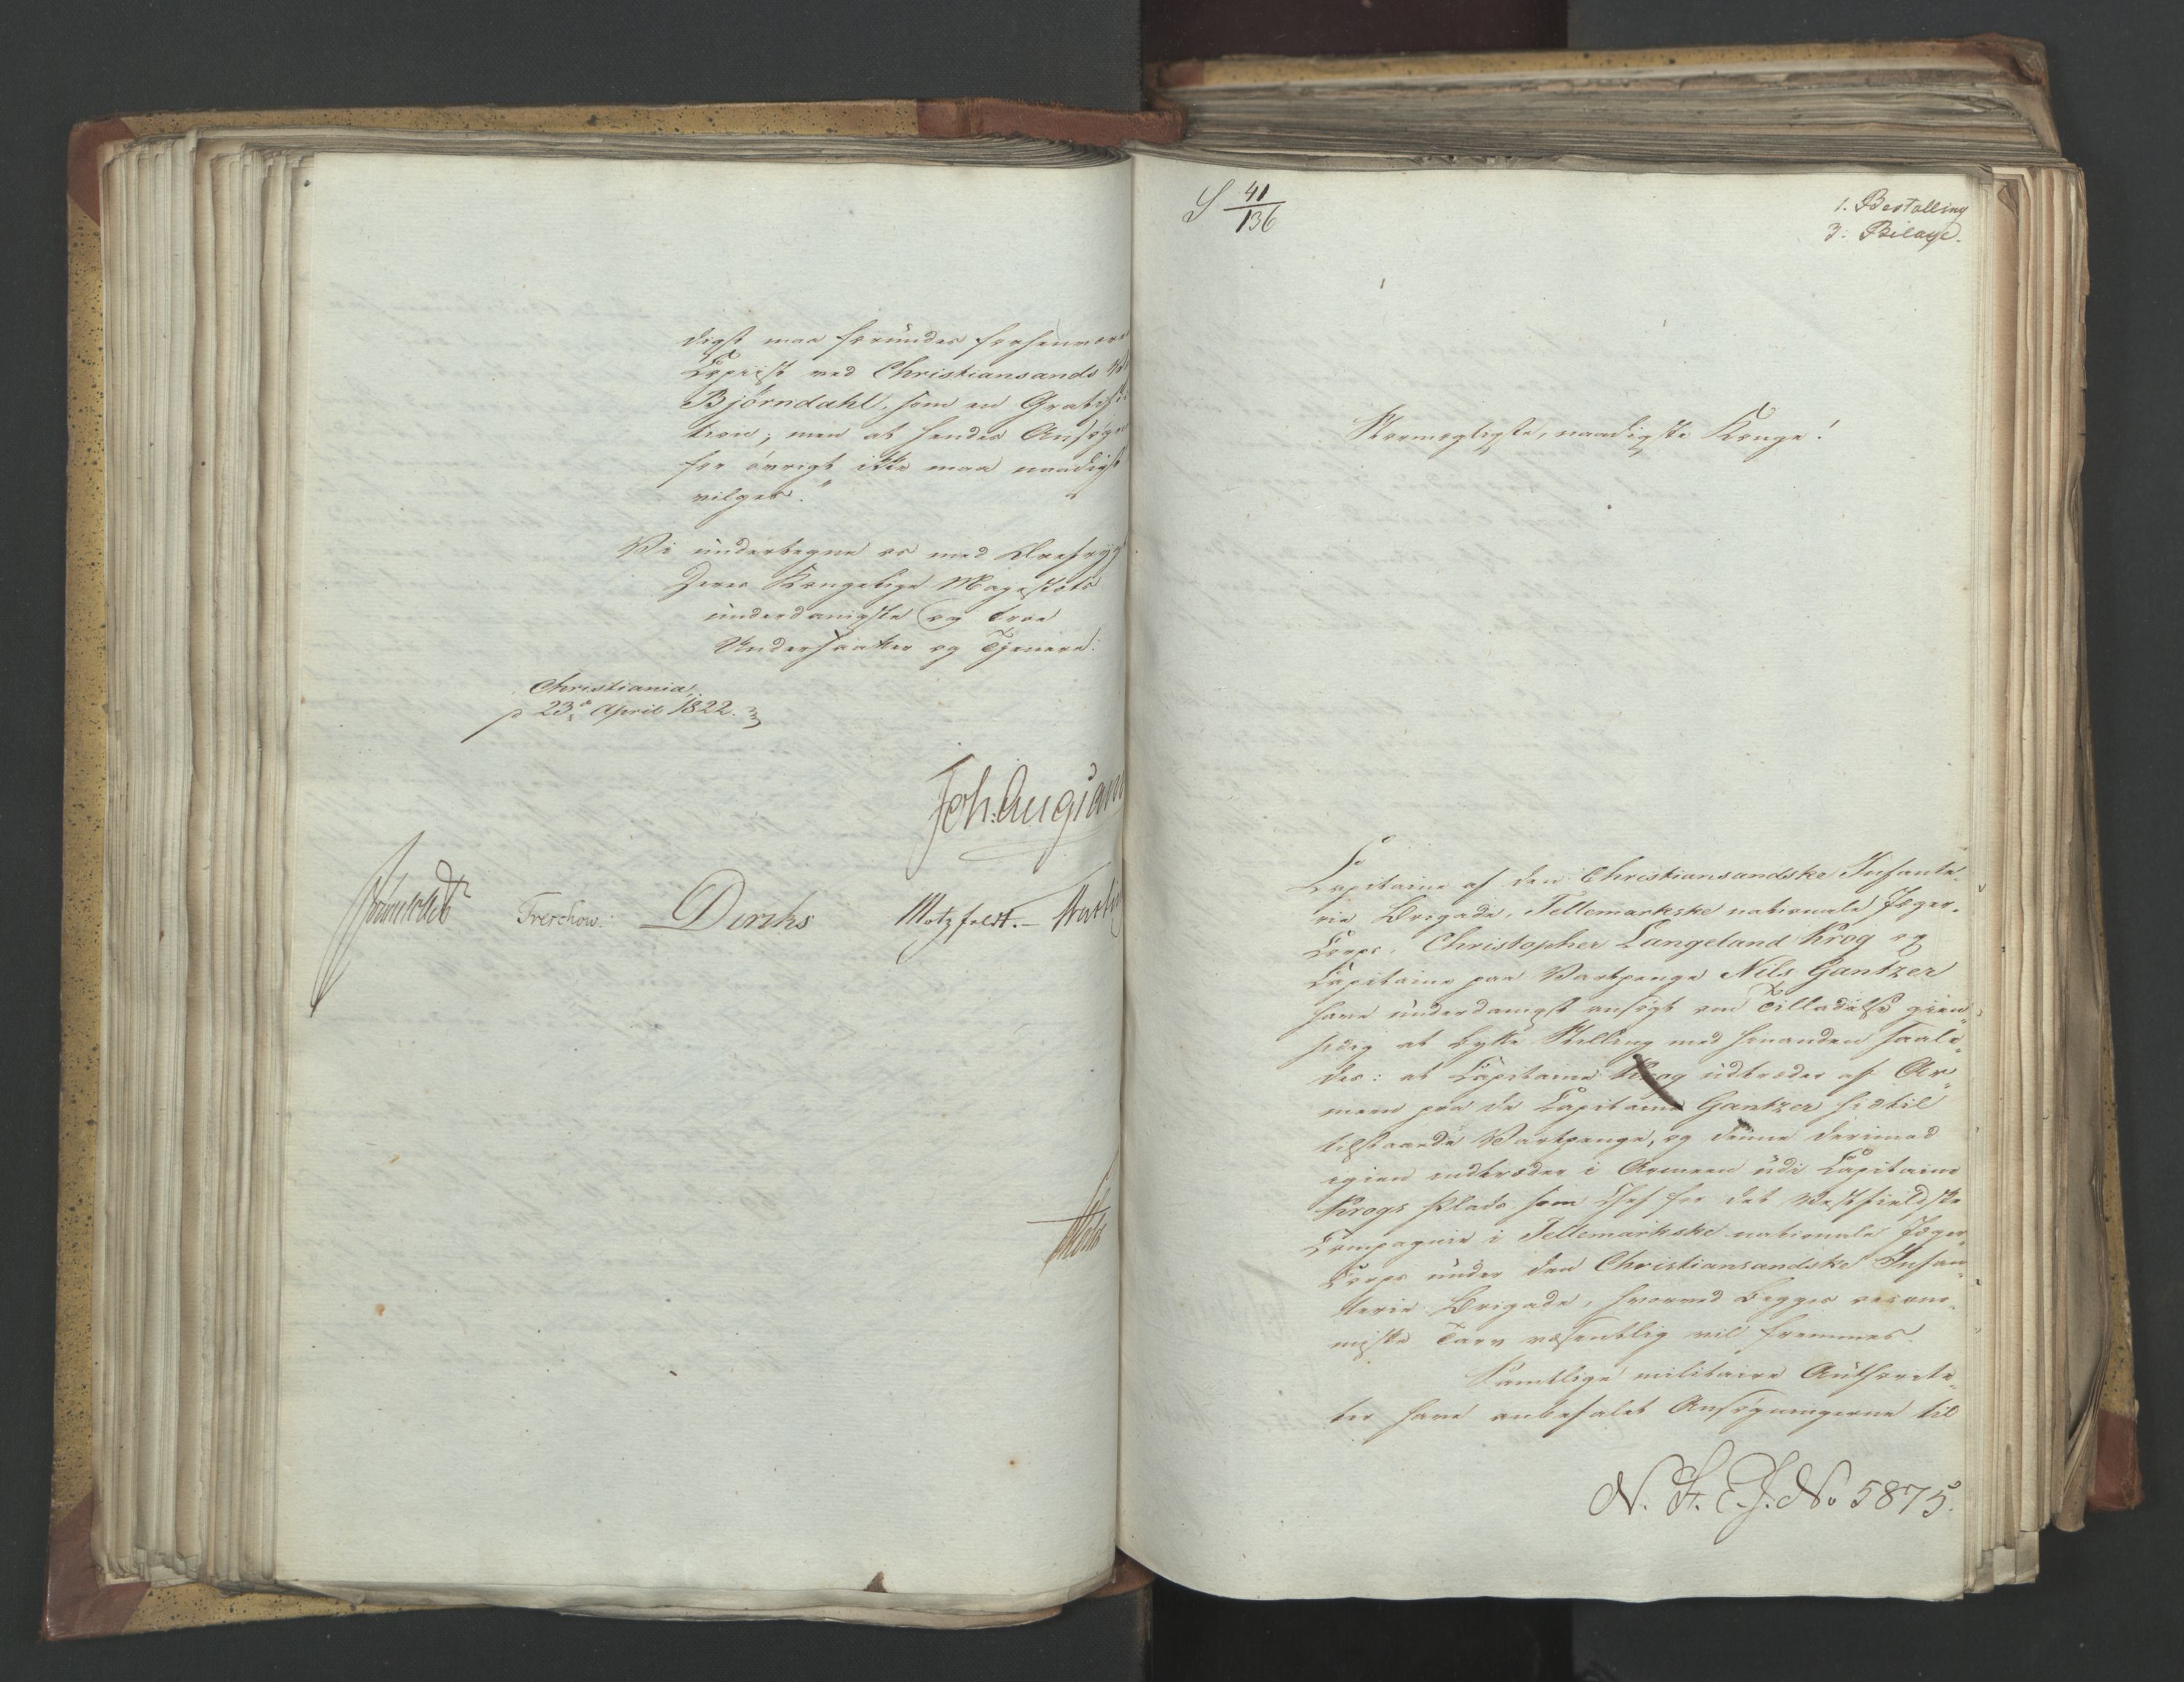 digst maa forundes forhenværen
Copiist ved Christiansands
Bjørndahl, som en Gratifi
tion; men at hendes Ansøgn
for øvrigt ikke maa naadigst
vilges."
Vi undertegne os med Ærefrygt
Deres Kongelige Majestæts
underdanigste og troe
Undersaatter og Tjenere:
Christiania,
23de April 1822.
Joh. Aug. Sand
Sommerhielm Treschow. Diriks Motzfeldt.
Holst
S 41/136
1. Bestalling
3. Bilage.
Stormægtigste, naadigste Konge!
Capitaine af den Christiansandske Infante-
rie Brigade, Tellemarkske nationale Jæger-
Corps, Christopher Langeland Krog og
Capitaine paa Vartpenge Nils Gantzer
have underdanigst ansøgt om Tilladelse gjen-
sidig at bytte Stilling med hinanden saale-
des: at Capitaine Krog udtræder af Ar-
meen paa de Capitaine Gantzer hidtil
tilstaaede Vartpenge, og denne derimod
igien indtræder i Armeen udi Capitaine
Krogs Plads som Chef for det Vestfieldske
Compagnie i Tellemarkske nationale Jæger-
Corps under den Christiansandske Infan-
terie Brigade, hvorved begges oecono-
miske Tarv væsentlig vil fremmes.
Samtlige militaire Authorite-
ter have anbefalet Ansøgningerne til
N. F. E. J. No 5875.